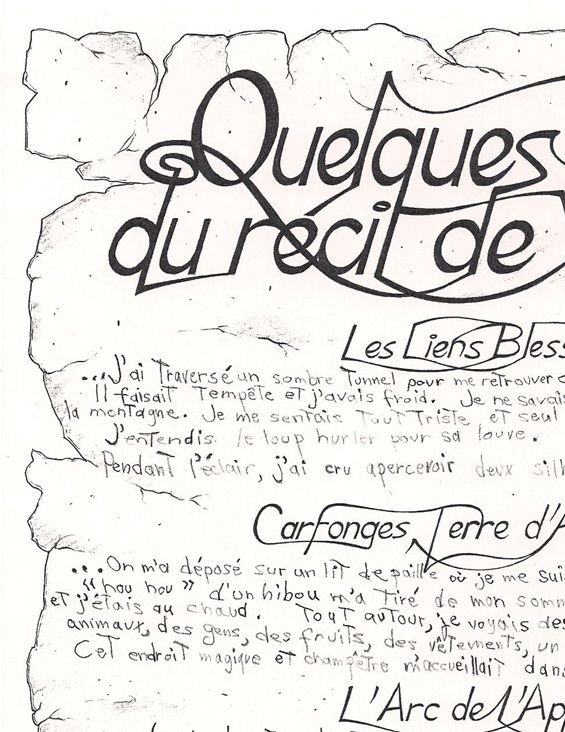 Quelques
du récit de
Les Liens Bless
...J'ai traversé un sombre tunnel pour me retrouver
Il faisait tempête et j'avais froid. Je ne savais
la montagne. Je me sentais tout triste et seul
J'entendis le loup hurler pour sa louve.
Pendant l'éclair, j'ai cru apercevoir deux silh
Carfonges, Terre d'A
...On m'a déposé sur un lit de paille où je me sui
"hou hou" d'un hibou m'a tiré de mon somm
et j'étais au chaud. Tout autour, je voyais des
animaux, des gens, des fruits, des vêtements, un
Cet endroit magique et champêtre m'accueillait dans
L'Arc de L'App